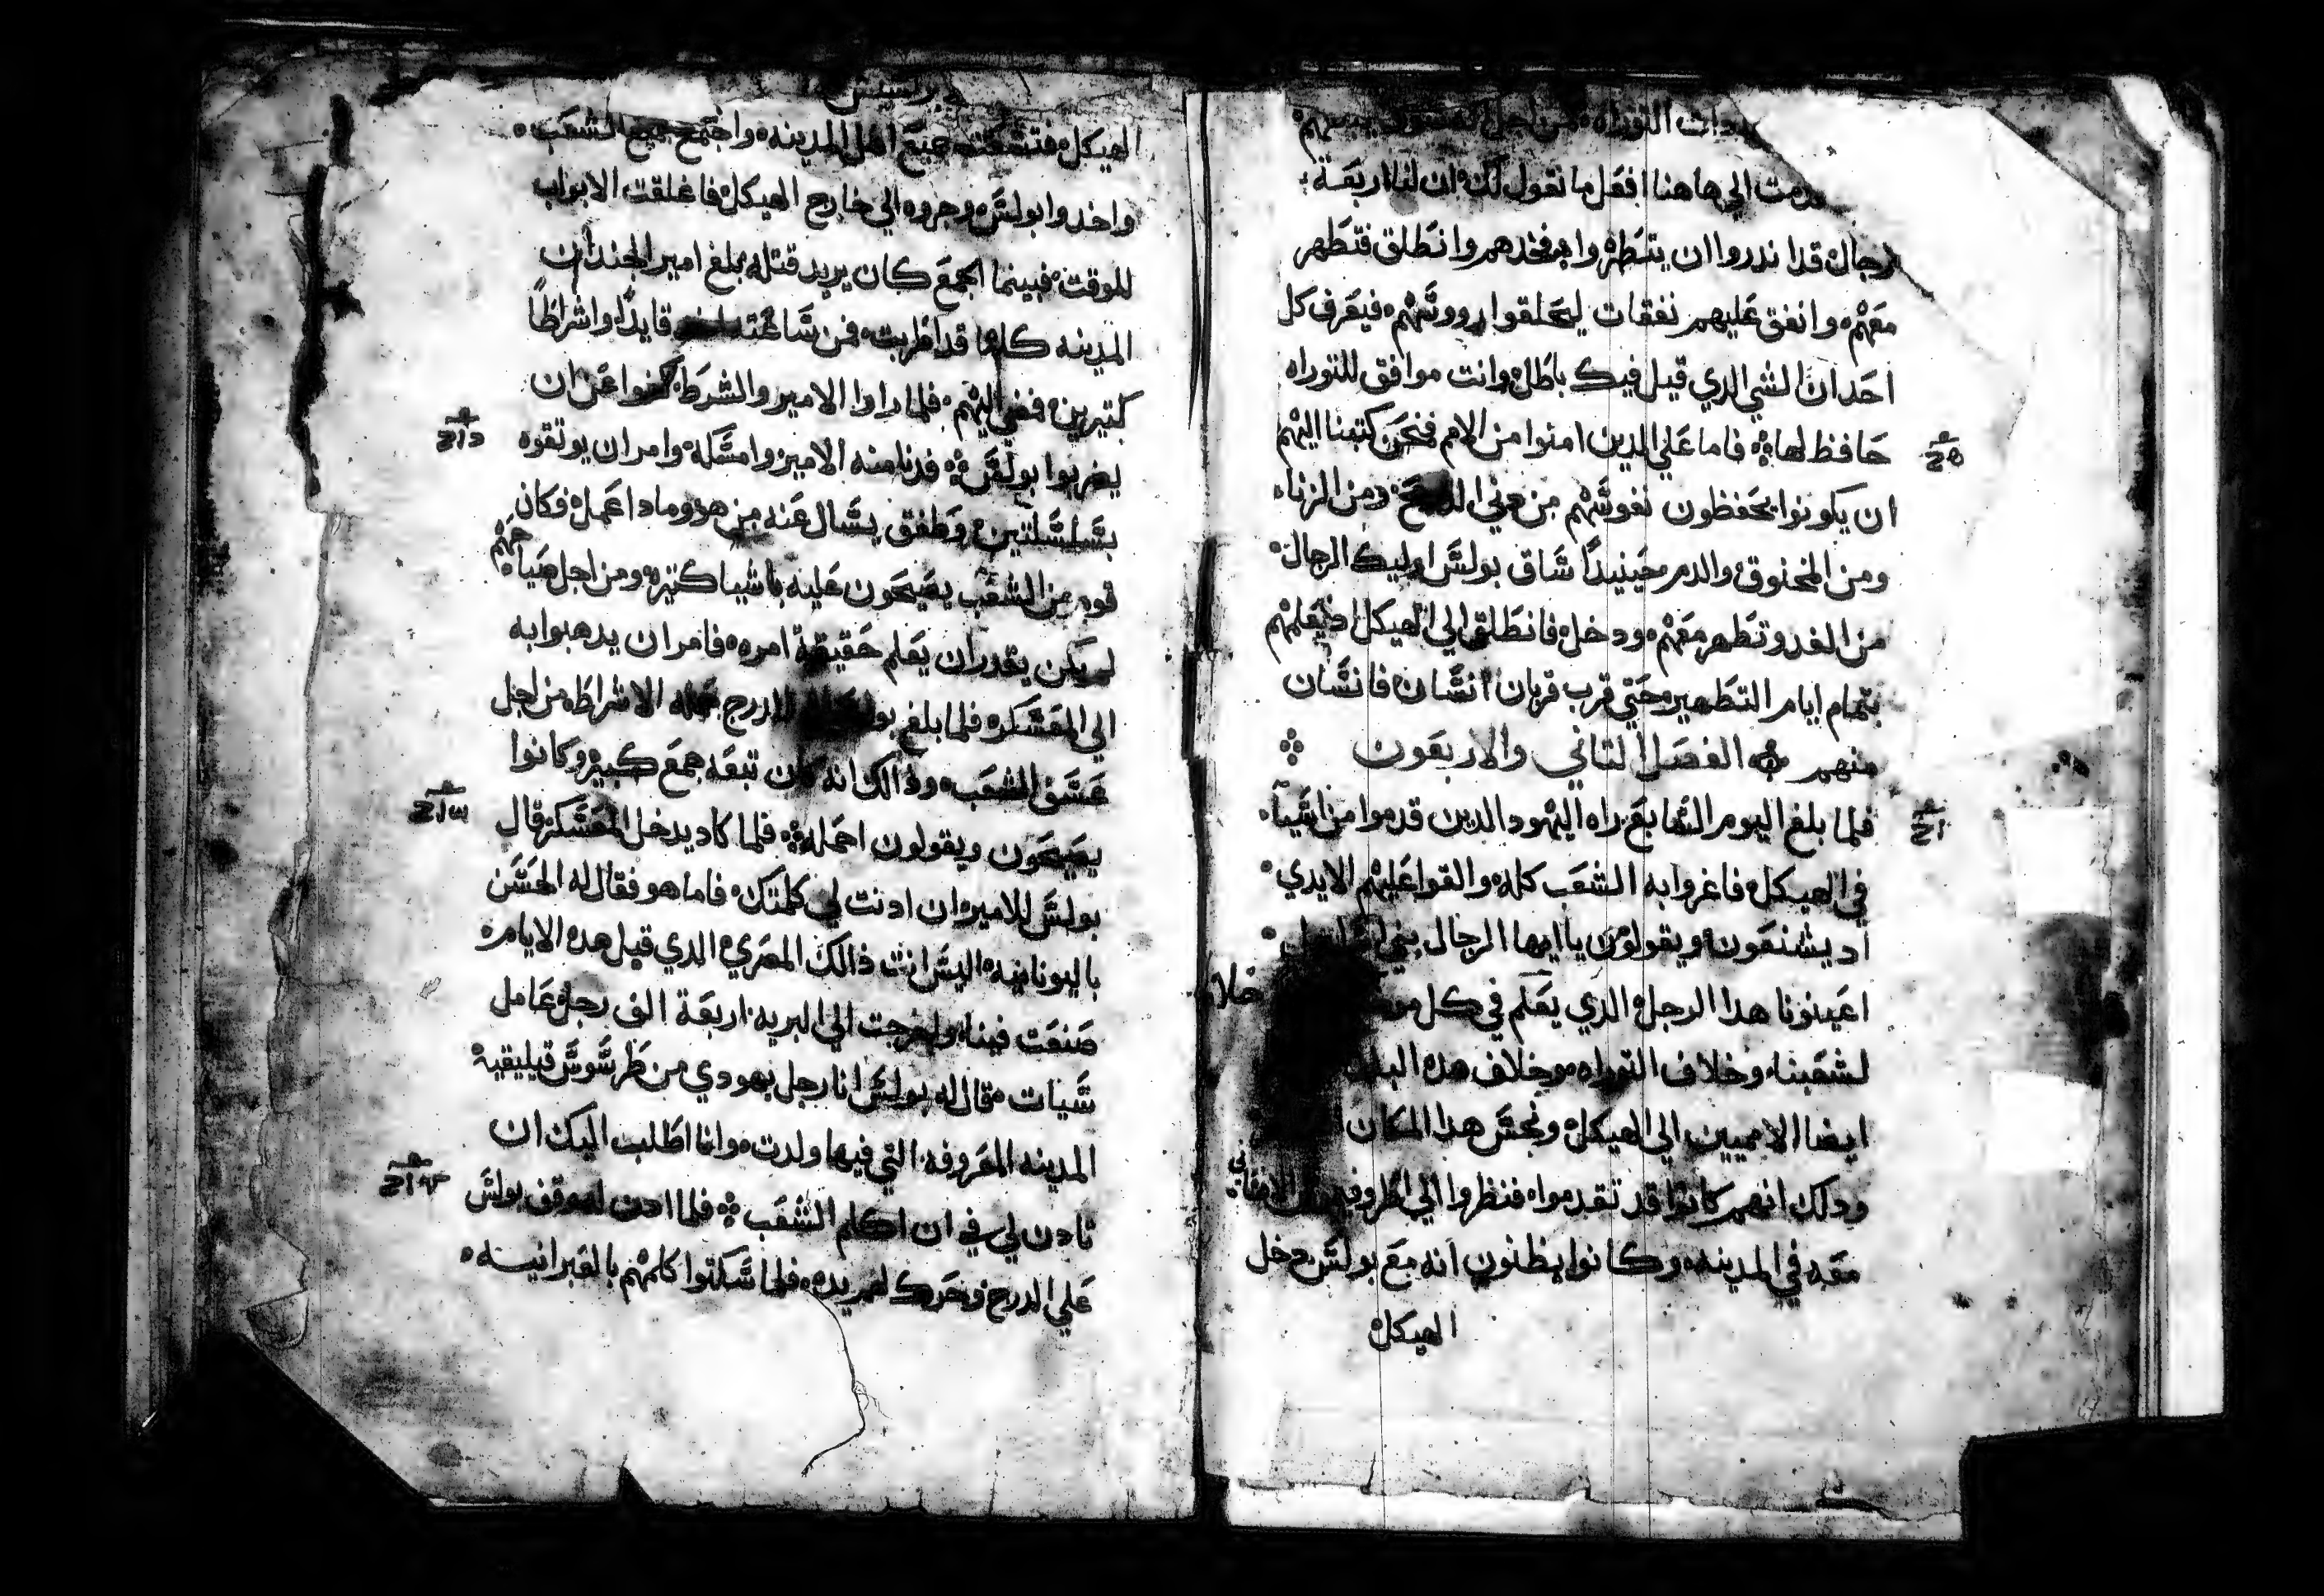 التوراه من اجل
الي هاهنا افعل ما نقول لك ان لنا اربعة
رجال قد اندروا ان يتطهروا فخدهم وانطلق فتطهر
معهم وانفق عليهم نفقات ليحلقوا رووسهم فيعرف كل
احد ان الشي الدي قيل فيك باطل وانت موافق للتوراه
حافظ لها فاما علي الدين امنوا من الامم فنحن كتبنا اليهم
ان يكونوا يحفظون نفوسهم من ومن الزناء
ومن المخنوق والدم حينيدا ساق بولس اوليك الرجال
من الغد وتطهر معهم ودخل فانطلق الي الهيكل اد يعلمهم
بتمام ايام التطهير حتي قرب قربان انسان فانسان
منهم الفصل التاني والاربعون
فلما بلغ اليوم السابع راه اليهود الدين قدموا من اسيا
في الهيكل فاغروا به الشعب كله والقوا عليهم الايدي
اد يشنعون ويقولون يا ايها الرجال بني
اعينونا هدا الرجل الدي يعلم في كل خلاف
لشعبنا وخلاف التوراه وخلاف هده
ايضا الامميين الي الهيكل ونجس هدا المكان
ودلك انهم كانوا قد تقدموا فنظروا الي
معه في المدينه وكانوا يظنون انه مع بولس دخل
الهيكل
الهيكل جميع اهل المدينه واجتمع جميع الشعب
واخدوا بولس وجروه الي خارج الهيكل فاغلقت الابواب
للوقت فبينما الجمع كان يريد قتله بلغ امير الجند ان
المدينه كلها قد اظربت فمن ساعته قايدا واشراطا
كتيرين فلما راوا الامير والشرط كفوا عن ان
يضربوا بولس فدنا منه الامير وامسكه وامر ان يوتقوه
بسلسلتين وطفق يسال عنه من هو ومادا عمل فكان
قوم من الشعب يصيحون عليه باشيا كتيره ومن اجل صياحهم
لم يكن يقدر ان يعلم حقيقة امره فامر ان يدهبوا به
الي المعسكر فلما بلغ الدرج الاشراط من اجل
عسف الشعب ودالك انه كان تبعه جمع كبير وكانوا
يصيحون ويقولون احمله فلما كاد يدخل المعسكر قال
بولس للامير ان ادنت لي كلمتك فاما هو فقال له اتحسن
باليونانيه اليس انت دالك المصري الدي قبل هده الايام
صنعت فينا واخرجت الي البريه اربعة الف رجل عامل
سيات فقال له بولس انا رجل يهودي من طرسوس قيليقيه
المدينه المعروفه التي فيها ولدت وانا اطلب اليك ان
تادن لي في ان اكلم الشعب فلما ادن له وقف بولس
علي الدرج وحرك لهم يده فلما سكتوا كلمهم بالعبرانيه